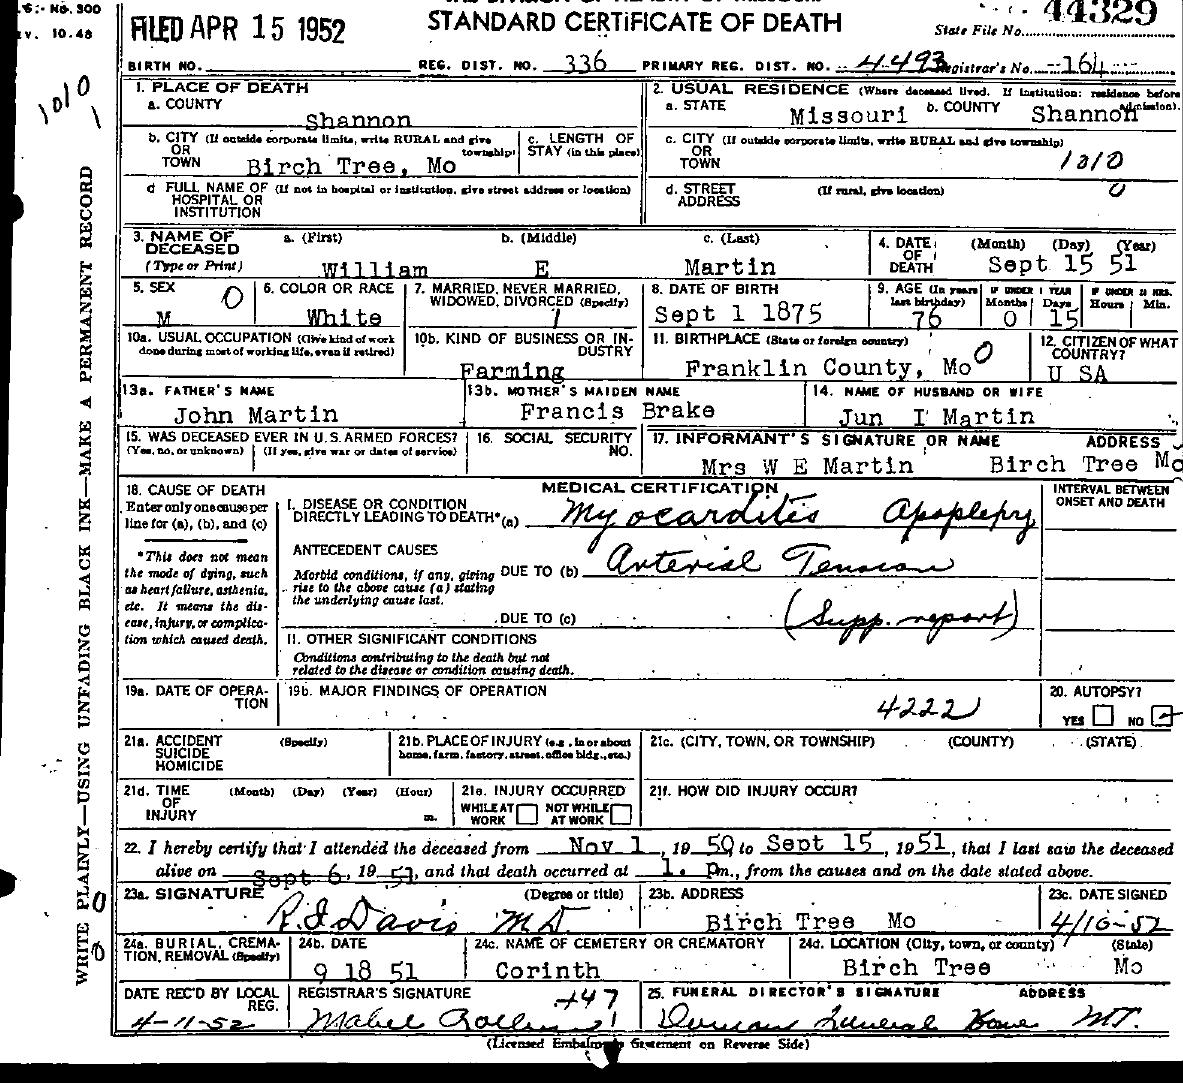 S. No. 300
EV. 10.48
FILED APR 15 1952
STANDARD CERTIFICATE OF DEATH
State File No. 44329
BIRTH NO. REG. DIST. NO. 336 PRIMARY REG. DIST. NO. 4493 Registrar's No. 164
1010
1. PLACE OF DEATH
a. COUNTY
Shannon
2. USUAL RESIDENCE (Where deceased lived. If institution: residence before admission).
a. STATE Missouri b. COUNTY Shannon
b. CITY (If outside corporate limits, write RURAL and give township)
OR
TOWN Birch Tree, Mo
c. LENGTH OF STAY (in this place)
c. CITY (If outside corporate limits, write RURAL and give township)
OR
TOWN
1310
d FULL NAME OF (If not in hospital or institution, give street address or location)
HOSPITAL OR
INSTITUTION
d. STREET (If rural, give location)
ADDRESS
0
3. NAME OF DECEASED
(Type or Print)
a. (First) William
b. (Middle) E
c. (Last) Martin
4. DATE OF DEATH (Month) (Day) (Year)
Sept 15 51
5. SEX 0
M
6. COLOR OR RACE
White
7. MARRIED, NEVER MARRIED, WIDOWED, DIVORCED (Specify)
1
8. DATE OF BIRTH
Sept 1 1875
9. AGE (In years last birthday) 76
IF UNDER 1 YEAR Months 0 Days 15
IF UNDER 24 HRS. Hours Min.
10a. USUAL OCCUPATION (Give kind of work done during most of working life, even if retired)
10b. KIND OF BUSINESS OR INDUSTRY
Farming
11. BIRTHPLACE (State or foreign country)
Franklin County, Mo 0
12. CITIZEN OF WHAT COUNTRY?
U SA
13a. FATHER'S NAME
John Martin
13b. MOTHER'S MAIDEN NAME
Francis Brake
14. NAME OF HUSBAND OR WIFE
Jun I Martin
15. WAS DECEASED EVER IN U.S. ARMED FORCES?
(Yes, no, or unknown) (If yes, give war or dates of service)
16. SOCIAL SECURITY NO.
17. INFORMANT'S SIGNATURE OR NAME ADDRESS
Mrs W E Martin Birch Tree Mo
18. CAUSE OF DEATH
Enter only one cause per line for (a), (b), and (c)
*This does not mean the mode of dying, such as heart failure, asthenia, etc. It means the disease, injury, or complication which caused death.
MEDICAL CERTIFICATION
INTERVAL BETWEEN ONSET AND DEATH
I. DISEASE OR CONDITION
DIRECTLY LEADING TO DEATH* (a) Myocarditis Apoplexy
ANTECEDENT CAUSES
Morbid conditions, if any, giving rise to the above cause (a) stating the underlying cause last.
DUE TO (b) Arterial Tension
DUE TO (c) (Supp. report)
II. OTHER SIGNIFICANT CONDITIONS
Conditions contributing to the death but not related to the disease or condition causing death.
19a. DATE OF OPERATION
19b. MAJOR FINDINGS OF OPERATION
4222
20. AUTOPSY?
YES NO
21a. ACCIDENT (Specify)
SUICIDE
HOMICIDE
21b. PLACE OF INJURY (e.g., in or about home, farm, factory, street, office bldg., etc.)
21c. (CITY, TOWN, OR TOWNSHIP) (COUNTY) (STATE)
21d. TIME OF INJURY (Month) (Day) (Year) (Hour) m.
21e. INJURY OCCURRED
WHILE AT WORK NOT WHILE AT WORK
21f. HOW DID INJURY OCCUR?
22. I hereby certify that I attended the deceased from Nov 1, 19 50 to Sept 15, 1951, that I last saw the deceased
alive on Sept 6, 19 51, and that death occurred at 1. Pm., from the causes and on the date stated above.
23a. SIGNATURE (Degree or title)
R.I. Davis M.D.
23b. ADDRESS
Birch Tree Mo
23c. DATE SIGNED
4/10-52
24a. BURIAL, CREMATION, REMOVAL (Specify)
24b. DATE
9 18 51
24c. NAME OF CEMETERY OR CREMATORY
Corinth
24d. LOCATION (City, town, or county) (State)
Birch Tree Mo
DATE REC'D BY LOCAL REG.
4-11-52
REGISTRAR'S SIGNATURE
447
Mabel
25. FUNERAL DIRECTOR'S SIGNATURE ADDRESS
Funeral Home
(Licensed Embalmer's Statement on Reverse Side)
WRITE PLAINLY—USING UNFADING BLACK INK—MAKE A PERMANENT RECORD